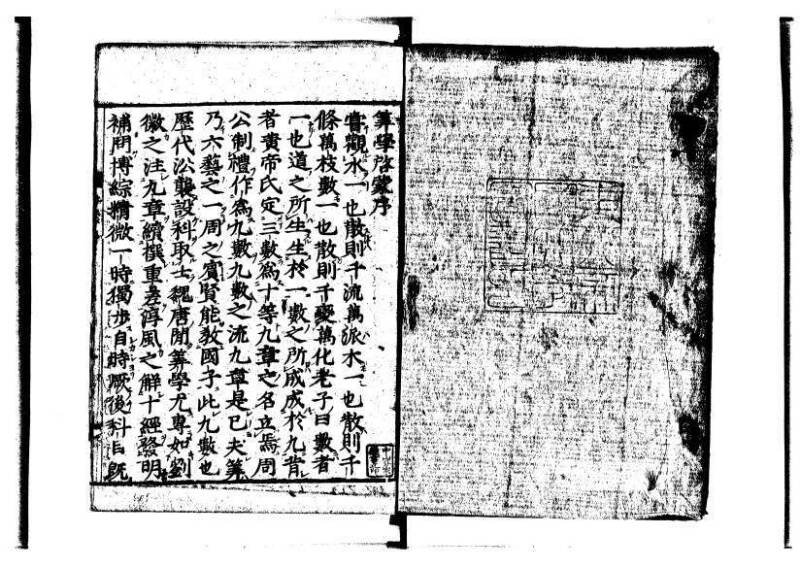 算學啓蒙序
嘗觀水一也散則千流萬派木一也散則千
條萬枝數一也散則千變萬化老子曰數者
一也道之所生生於一數之所成成於九昔
者黃帝氏定三數爲十等九章之名立焉周
公制禮作爲九數九數之流九章是已夫筭
乃六藝之一周之賓賢能敎國子此九數也
歷代沿襲設科取士魏唐間筭學尤專如劉
徽之注九章續撰重差淳風之解十經發明
補問博綜精微一時獨步自時厥後科目旣